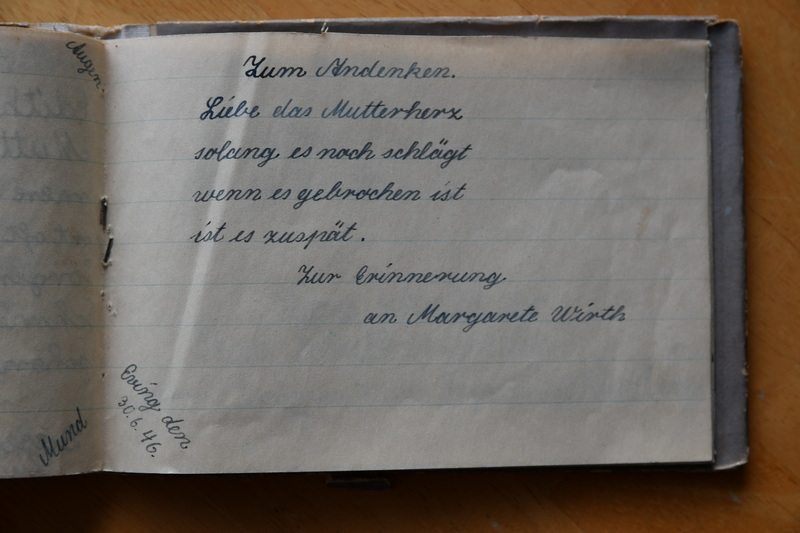 Augen.
Mund
Zum Andenken.
Liebe das Mutterherz
solang es noch schlägt
wenn es gebrochen ist
ist es zuspät.
Zur Erinnerung
an Margarete Wirth
Eving den
30.6.46.